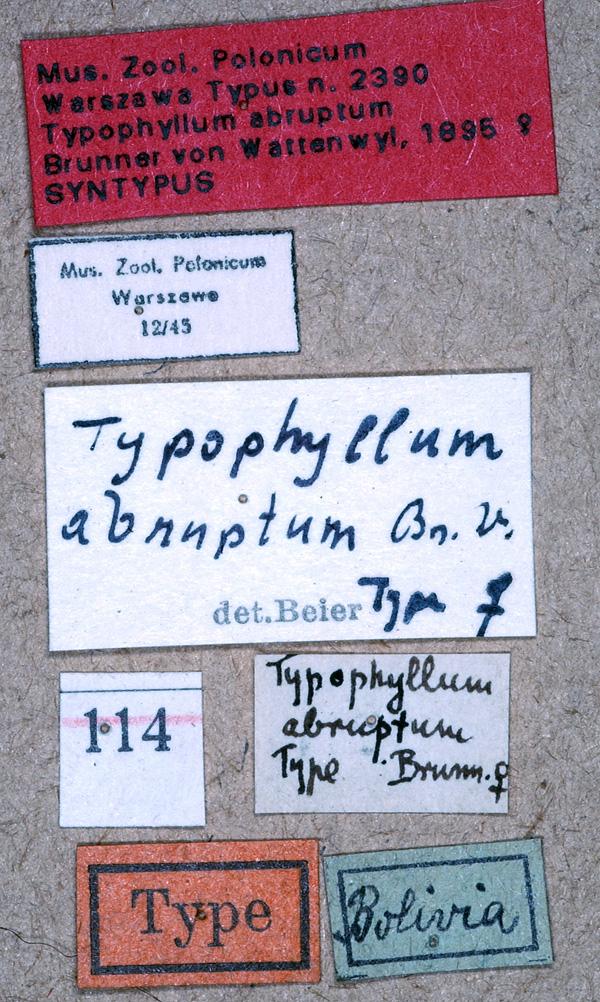 Mus. Zool. Polonicum
Warszawa Typus n. 2390
Typophyllum abruptum
Brunner von Wattenwyl, 1895 ♀
SYNTYPUS
Mus. Zool. Polonicum
Warszawa
12/45
Typophyllum
abruptum Br. v.
det. Beier Type ♀
114
Typophyllum
abruptum
Type Brunn. ♀
Type
Bolivia